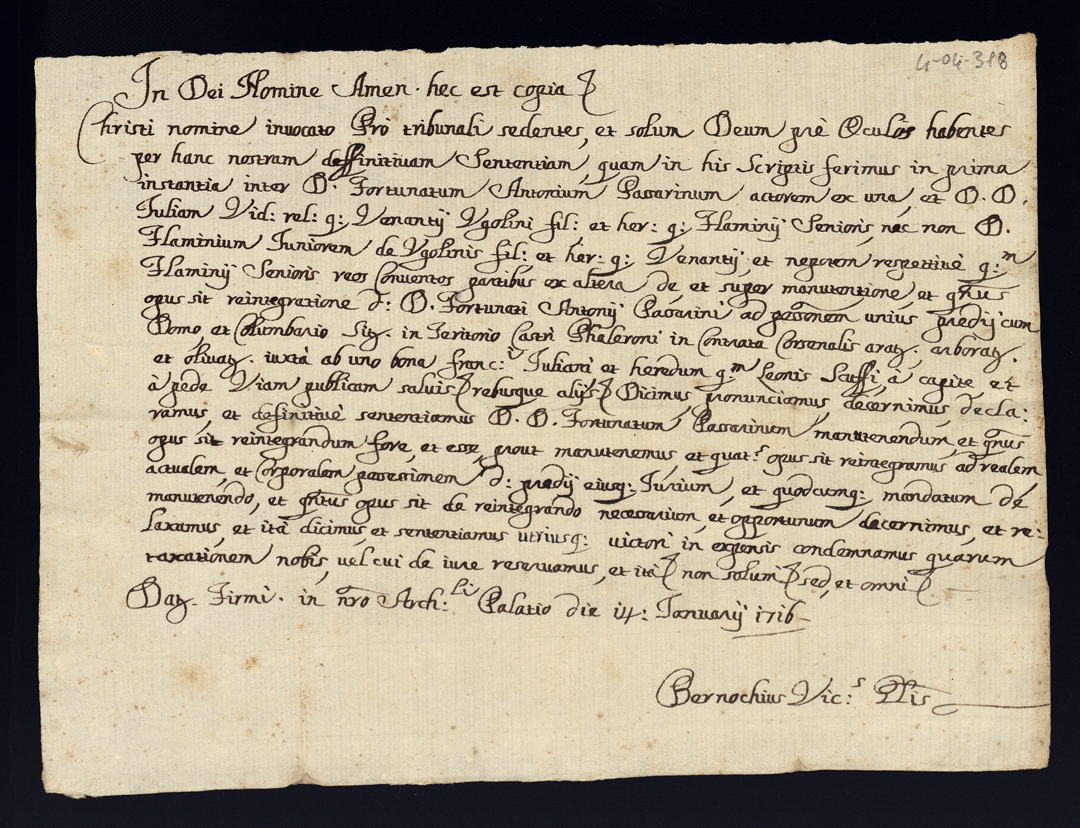 4-04-318
In Dei Nomine Amen. hec est copia
Christi nomine inuocato Pro tribunali sedentes, et solum Deum prè Oculos habentes
per hanc nostram deffinitiuam Sententiam, quam in his Scriptis ferimus in prima
instantia inter D. Fortunatum Antonium Passarinum actorem ex una, et D. D.
Iuliam Vid: rel: q: Venantij Vgolini fil: et her: q: Flaminij Senioris, nec non D.
Flaminium Iuniorem de Vgolinis fil: et her: q: Venantij et nepotem respettiuè q:m
Flaminij Senioris reos Conuentos partibus ex altera de, et super manutentione, et qtnus
opus sit reintegratione d: D. Fortunati Antonij Passarini ad possonem unius predij cum
Domo et Columbario Sit. in Teritorio Castri Phaleroni in Contrata Corsenalis arat. arborat.
et oliuat. iuxtà ab uno bona Franc:i Iuliani et heredum q:m Leonis Scuffi, à capite, et
à pede Viam publicam saluis rebusque alijs Dicimus, pronunciamus, decernimus, decla:
ramus, et definitiuè sententiamus D. D. Fortunatum Passarinum manutenendum, et qtnus
opus sit reintegrandum fore, et esse, prout manutenemus, et quat.s opus sit reintegramus ad realem
actualem, et Corporalem possessionem d: predij eiusq: Iurium, et quodcumq: mandatum de
manutenendo, et qtntus opus sit de reintegrando necessarium, et opportunum decernimus, et re:
laxamus, et ità dicimus et sententiamus utriusq: uictori in expensis condemnamus quarum
taxationem nobis, uel cui de iure reseruamus, et ità non solum sed, et omni
Dat. Firmi. in nro Arch:li Palatio die 14: Ianuarij 1716
Bernochius Vic:s Glis